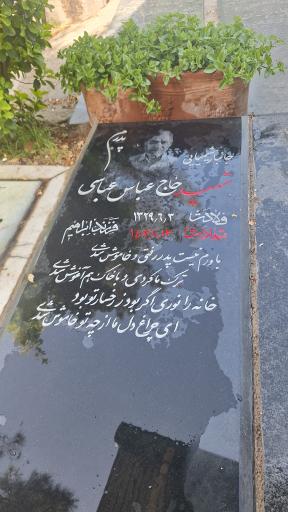 پدرم
جانباز شیمیایی
شهید
حاج عباس عباسی
ولادت: ۱۳۲۹,۶,۳
فرزند: ابراهیم
شهادت:
باورم نیست پدر رفتی و خاموش شدی
ترک ما کردی و با خاک هم آغوش شدی
خانه را نوری اگر بود ز رخسار تو بود
ای چراغ دل ما از چه تو خاموش شدی